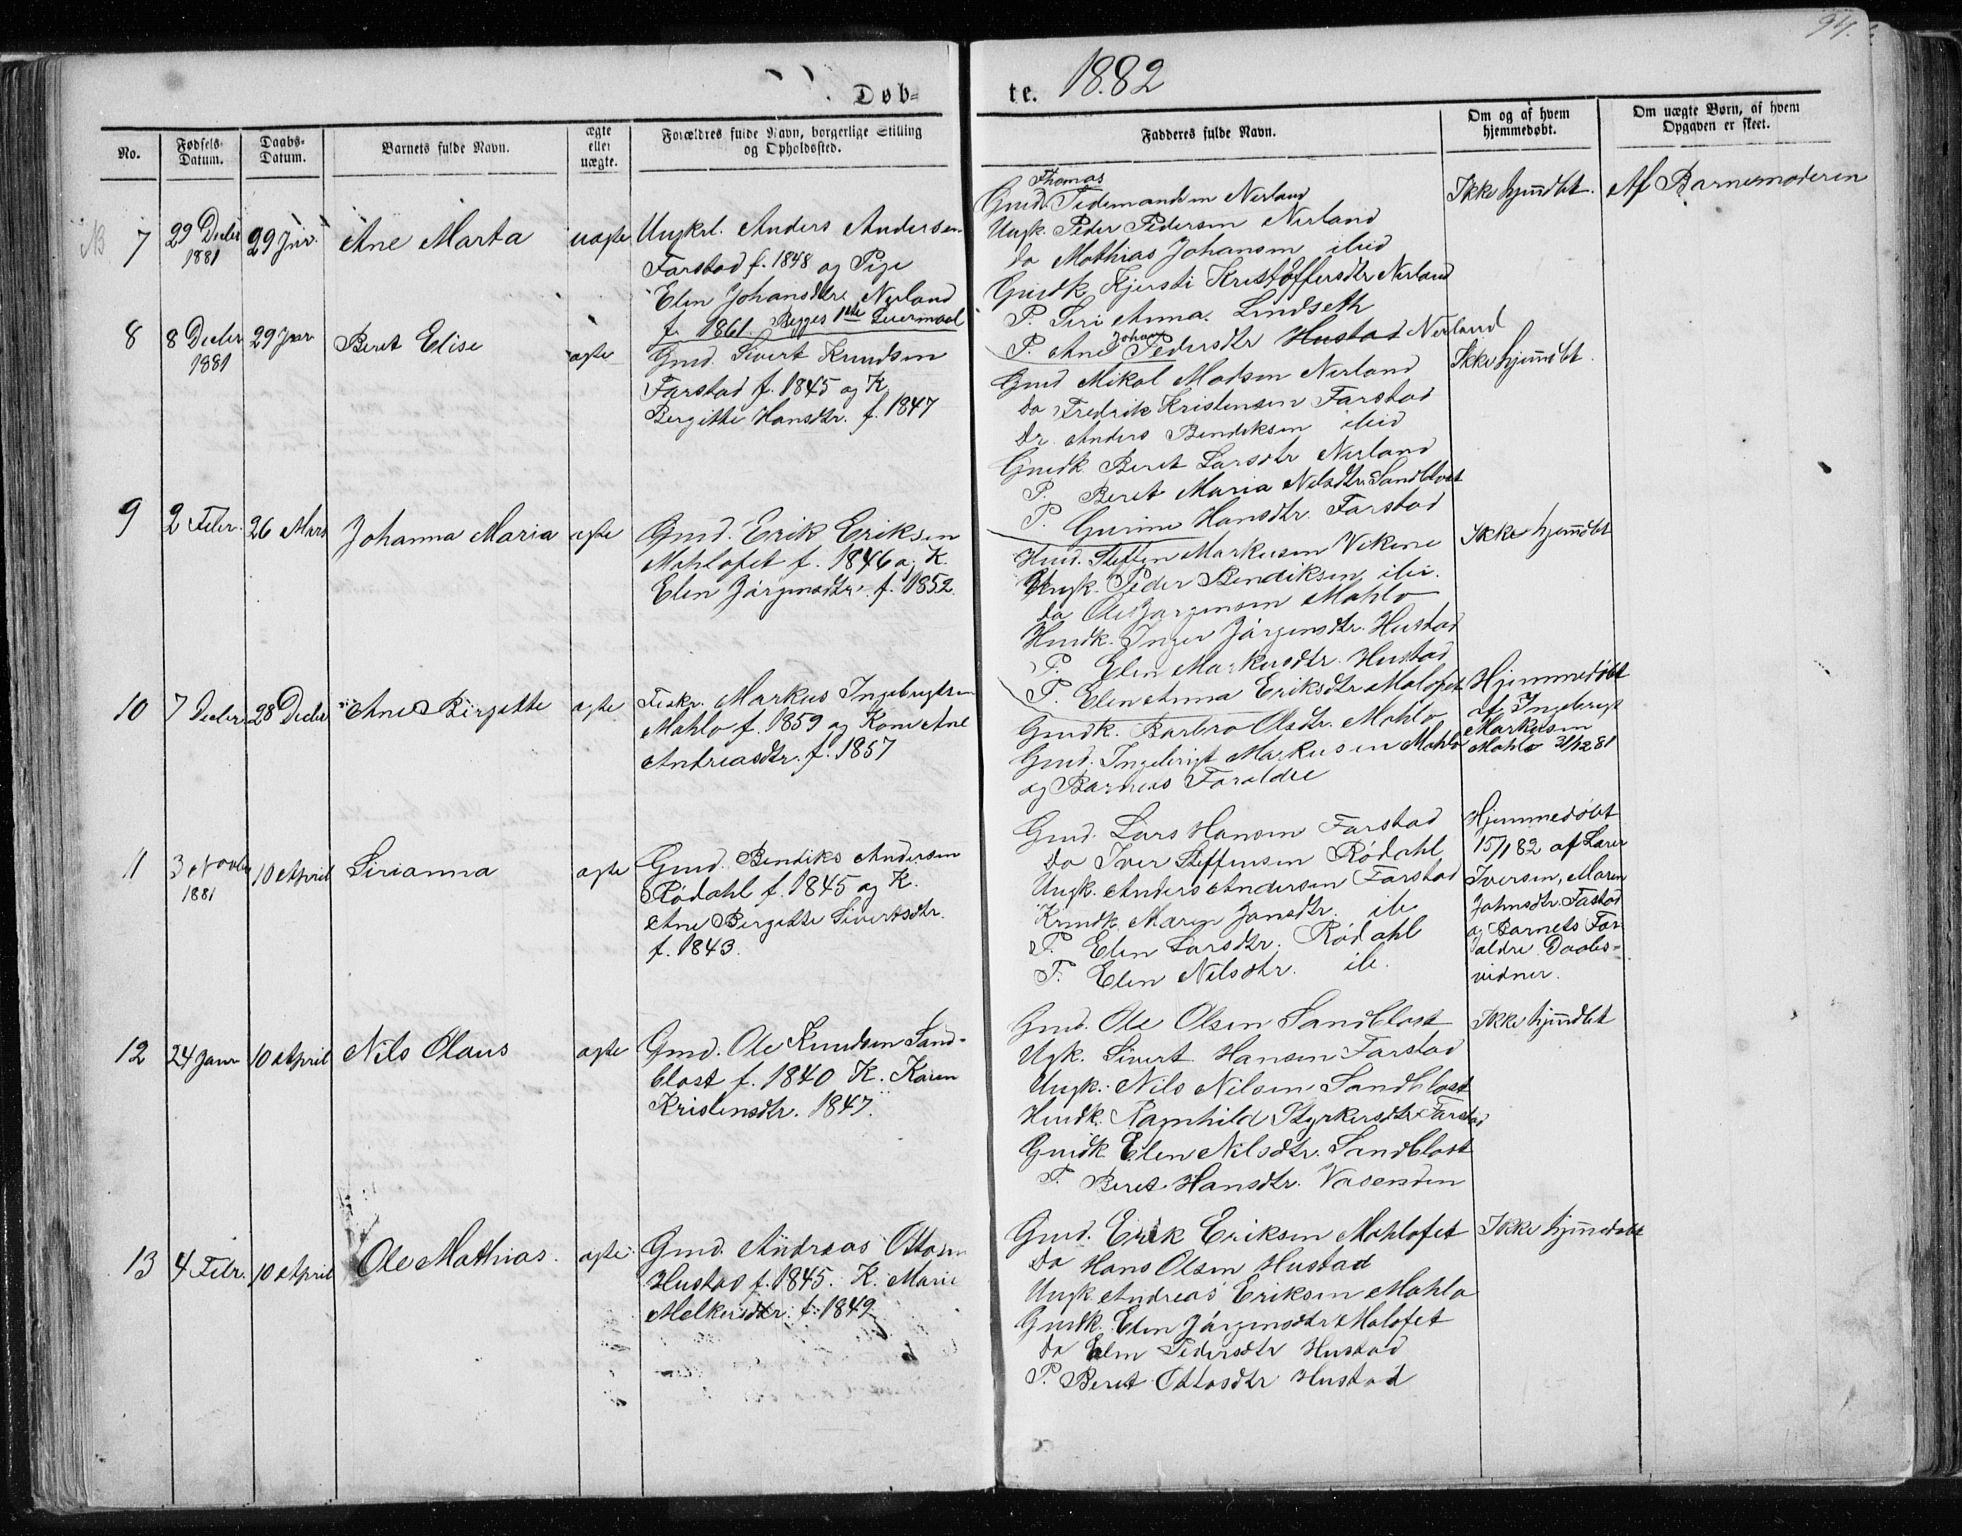 94.
Døb-
te. 1882
No.
Fødsels-
Datum.
Daabs-
Datum.
Barnets fulde Navn.
ægte
eller
uægte.
Forældres fulde Navn, borgerlige Stilling
og Opholdssted.
Fadderes fulde Navn.
Om og af hvem
hjemmedøbt.
Om uægte Børn, af hvem
Opgaven er skeet.
NB 7
29 Decbr
1881
29 Jnr.
Ane Marta
uægte
Ungkrl. Anders Andersen
Farstad f. 1848 og Pige
Elen Johansdtr. Nerland
f. 1861. Begges 1ste Leiermaal
Thomas
Gmd. Tidemandsen Nerland
Ungk. Peder Pedersen Nerland
do Mathias Johansen ibid
Gmdk. Kjersti Kristoffersdtr Nerland
P. Siri Anna Lindseth
P. Ane Johan Pedersdtr Hustad Nerland
Ikke hjmdbt.
Af Barnemoderen
8
8 Decbr
1881
29 Jnr
Beret Elise
ægte
Gmd. Sivert Knudsen
Farstad f. 1845 og K.
Bergitte Hansdtr. f. 1847
Gmd Mikal Madsen Nerland
do Fredrik Kristensen Farstad
do Anders Bendiksen ibid
Gmdk Beret Larsdtr Nerland
P. Beret Maria Nilsdtr. Sandblost
P. Gurine Hansdtr. Farstad
Ikke hjmdbt.
9
2 Febr.
26 Mars
Johanna Maria
ægte
Gmd. Erik Eriksen
Mahlofet f. 1846 og K.
Elen Jörgensdtr. f. 1852.
Hmd. Steffen Markusen Vikene
Ungk. Peder Bendiksen ibi.
do Ole Jörgensen Mahlo
Hmdk. Inger Jörgensdtr. Hustad
P. Elen Markusdtr. Hustad
P. Elen Anna Eriksdtr Malofet
Ikke hjemdbt
10
7 Decbr
28 Decbr
Ane Bergitte
ægte
Fisker. Markus Ingebrigtsen
Mahlo f. 1859 og Kone Ane
Andreasdtr. f. 1857
Gmdk. Barbro Olsdtr. Mahlo
Gmd. Ingebrigt Markusen Mahlo
og Barnets Forældre
Hjemmedöbt
af Ingebrigt
Markusen
Mahlo 31/12 81
11
3 Novbr
1881
10 April
Sirianna
ægte
Gmd. Bendiks Andersen
Rödahl f. 1845 og K.
Ane Bergitte Sivertsdtr.
f. 1843.
Gmd. Lars Hansen Farstad
do Iver Steffensen Rödahl
Ungk. Anders Andersen Farstad
Kmdk. Maren Jonsdtr. ib
P. Elen Larsdtr. Rödahl
P. Elen Nilsdtr. ib.
Hjemmedöbt
15/1 82 af Lærer
Iversen, Maren
Johnsdtr. Fastad
og Barnets For-
ældre Daabs-
vidner.
12
24 Janr
10 April
Nils Olaus
ægte
Gmd. Ole Knudsen Sand-
blost f. 1840 K. Karen
Kristensdtr. 1847.
Gmd. Ole Olsen Sandblost
Ugk. Sivert Hansen Farstad
Ungk. Nils Nilsen Sandblost
Hmdk. Ramhild Styrkersdtr Farstad
Gmdk Elen Nilsdtr. Sandblost
P. Beret Hansdtr. Vasenden
Ikke hjmdbt
13
4 Febr.
10 April
Ole Mathias.
ægte
Gmd. Andreas Ottosen
Hustad f. 1845. K. Marie
Melkersdtr. f. 1849
Gmd. Erik Eriksen Mahlofet
do Hans Olsen Hustad
Ungk Andreas Eriksen Mahlo
Gmdk. Elen Jörgensdtr Malofet
do Elen Pedersdtr Hustad
P. Beret Ottosdtr Hustad
Ikke hjmmedöbt